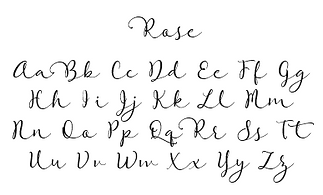 Rose
Aa Bb Cc Dd Ee Ff Gg
Hh Ii Jj Kk Ll Mm
Nn Oo Pp Qq Rr Ss Tt
Uu Vv Ww Xx Yy Zz